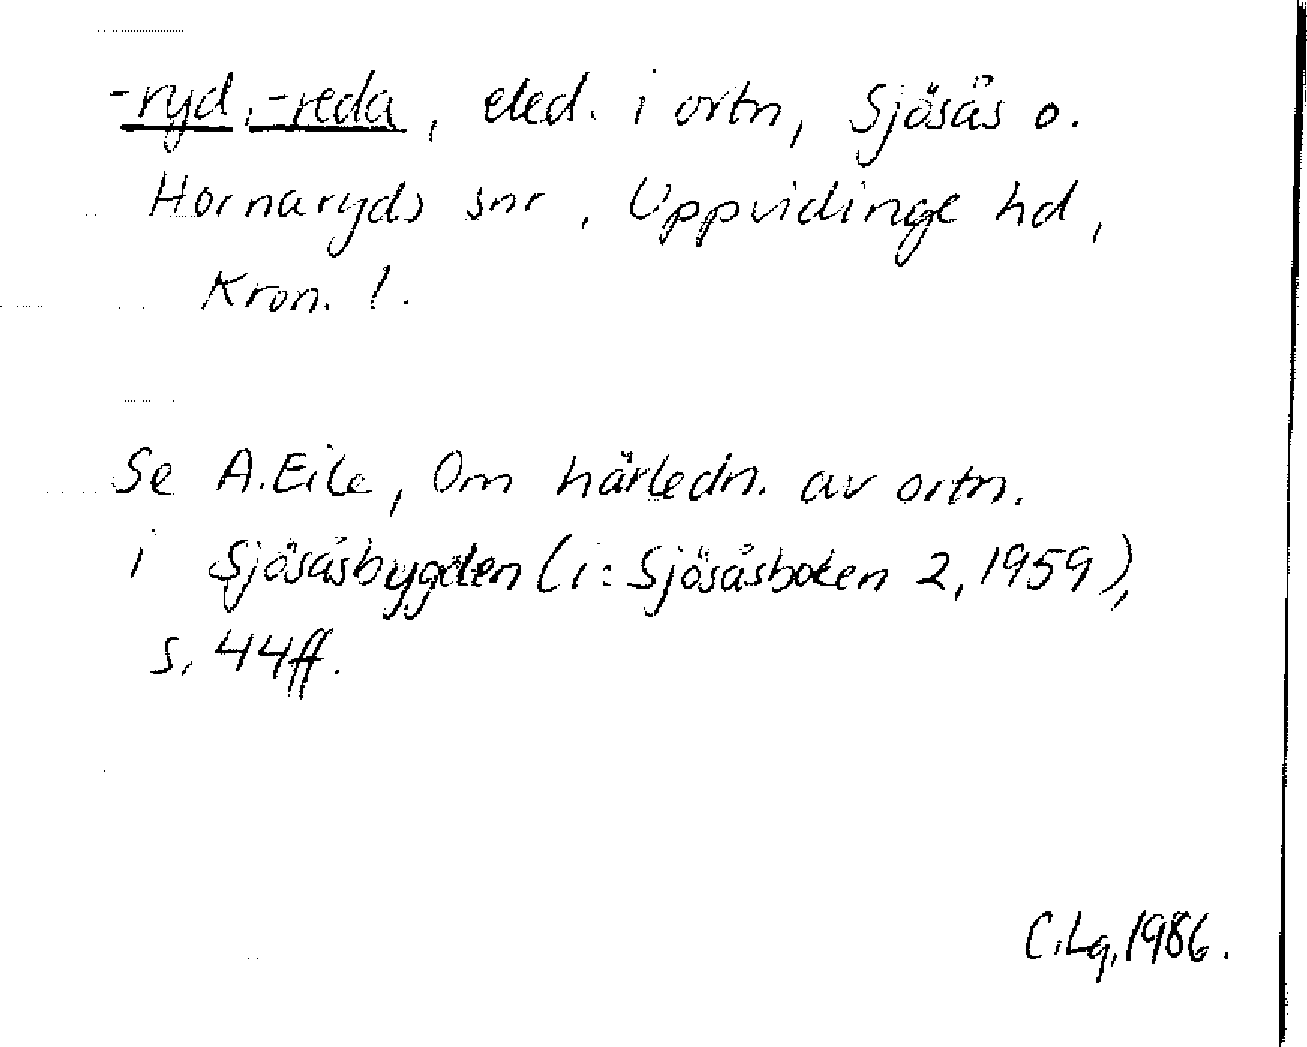 -ryd, -reda, eled. i ortn, Sjösås o.
Hornaryds snr, Uppvidinge hd,
Kron. l.
Se A. Eile, Om härledn. av ortn.
i Sjösåsbygden (i: Sjösåsboken 2, 1959),
s. 44ff.
C. Lg, 1986.